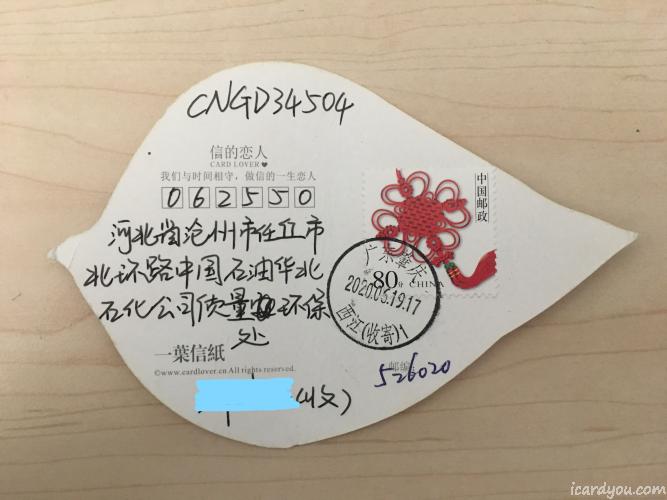 CNGD34504
信的恋人
CARD LOVER♥
我们与时间相守，做信的一生恋人
062550
中国邮政
河北省沧州市任丘市
北环路中国石油华北
石化公司质量环保
处
80分 CHINA
广东肇庆
2020.05.19.17
西江(收寄)1
一葉信紙
©www.cardlover.cn All rights reserved.
邮编:
526020
(收)
icardyou.com